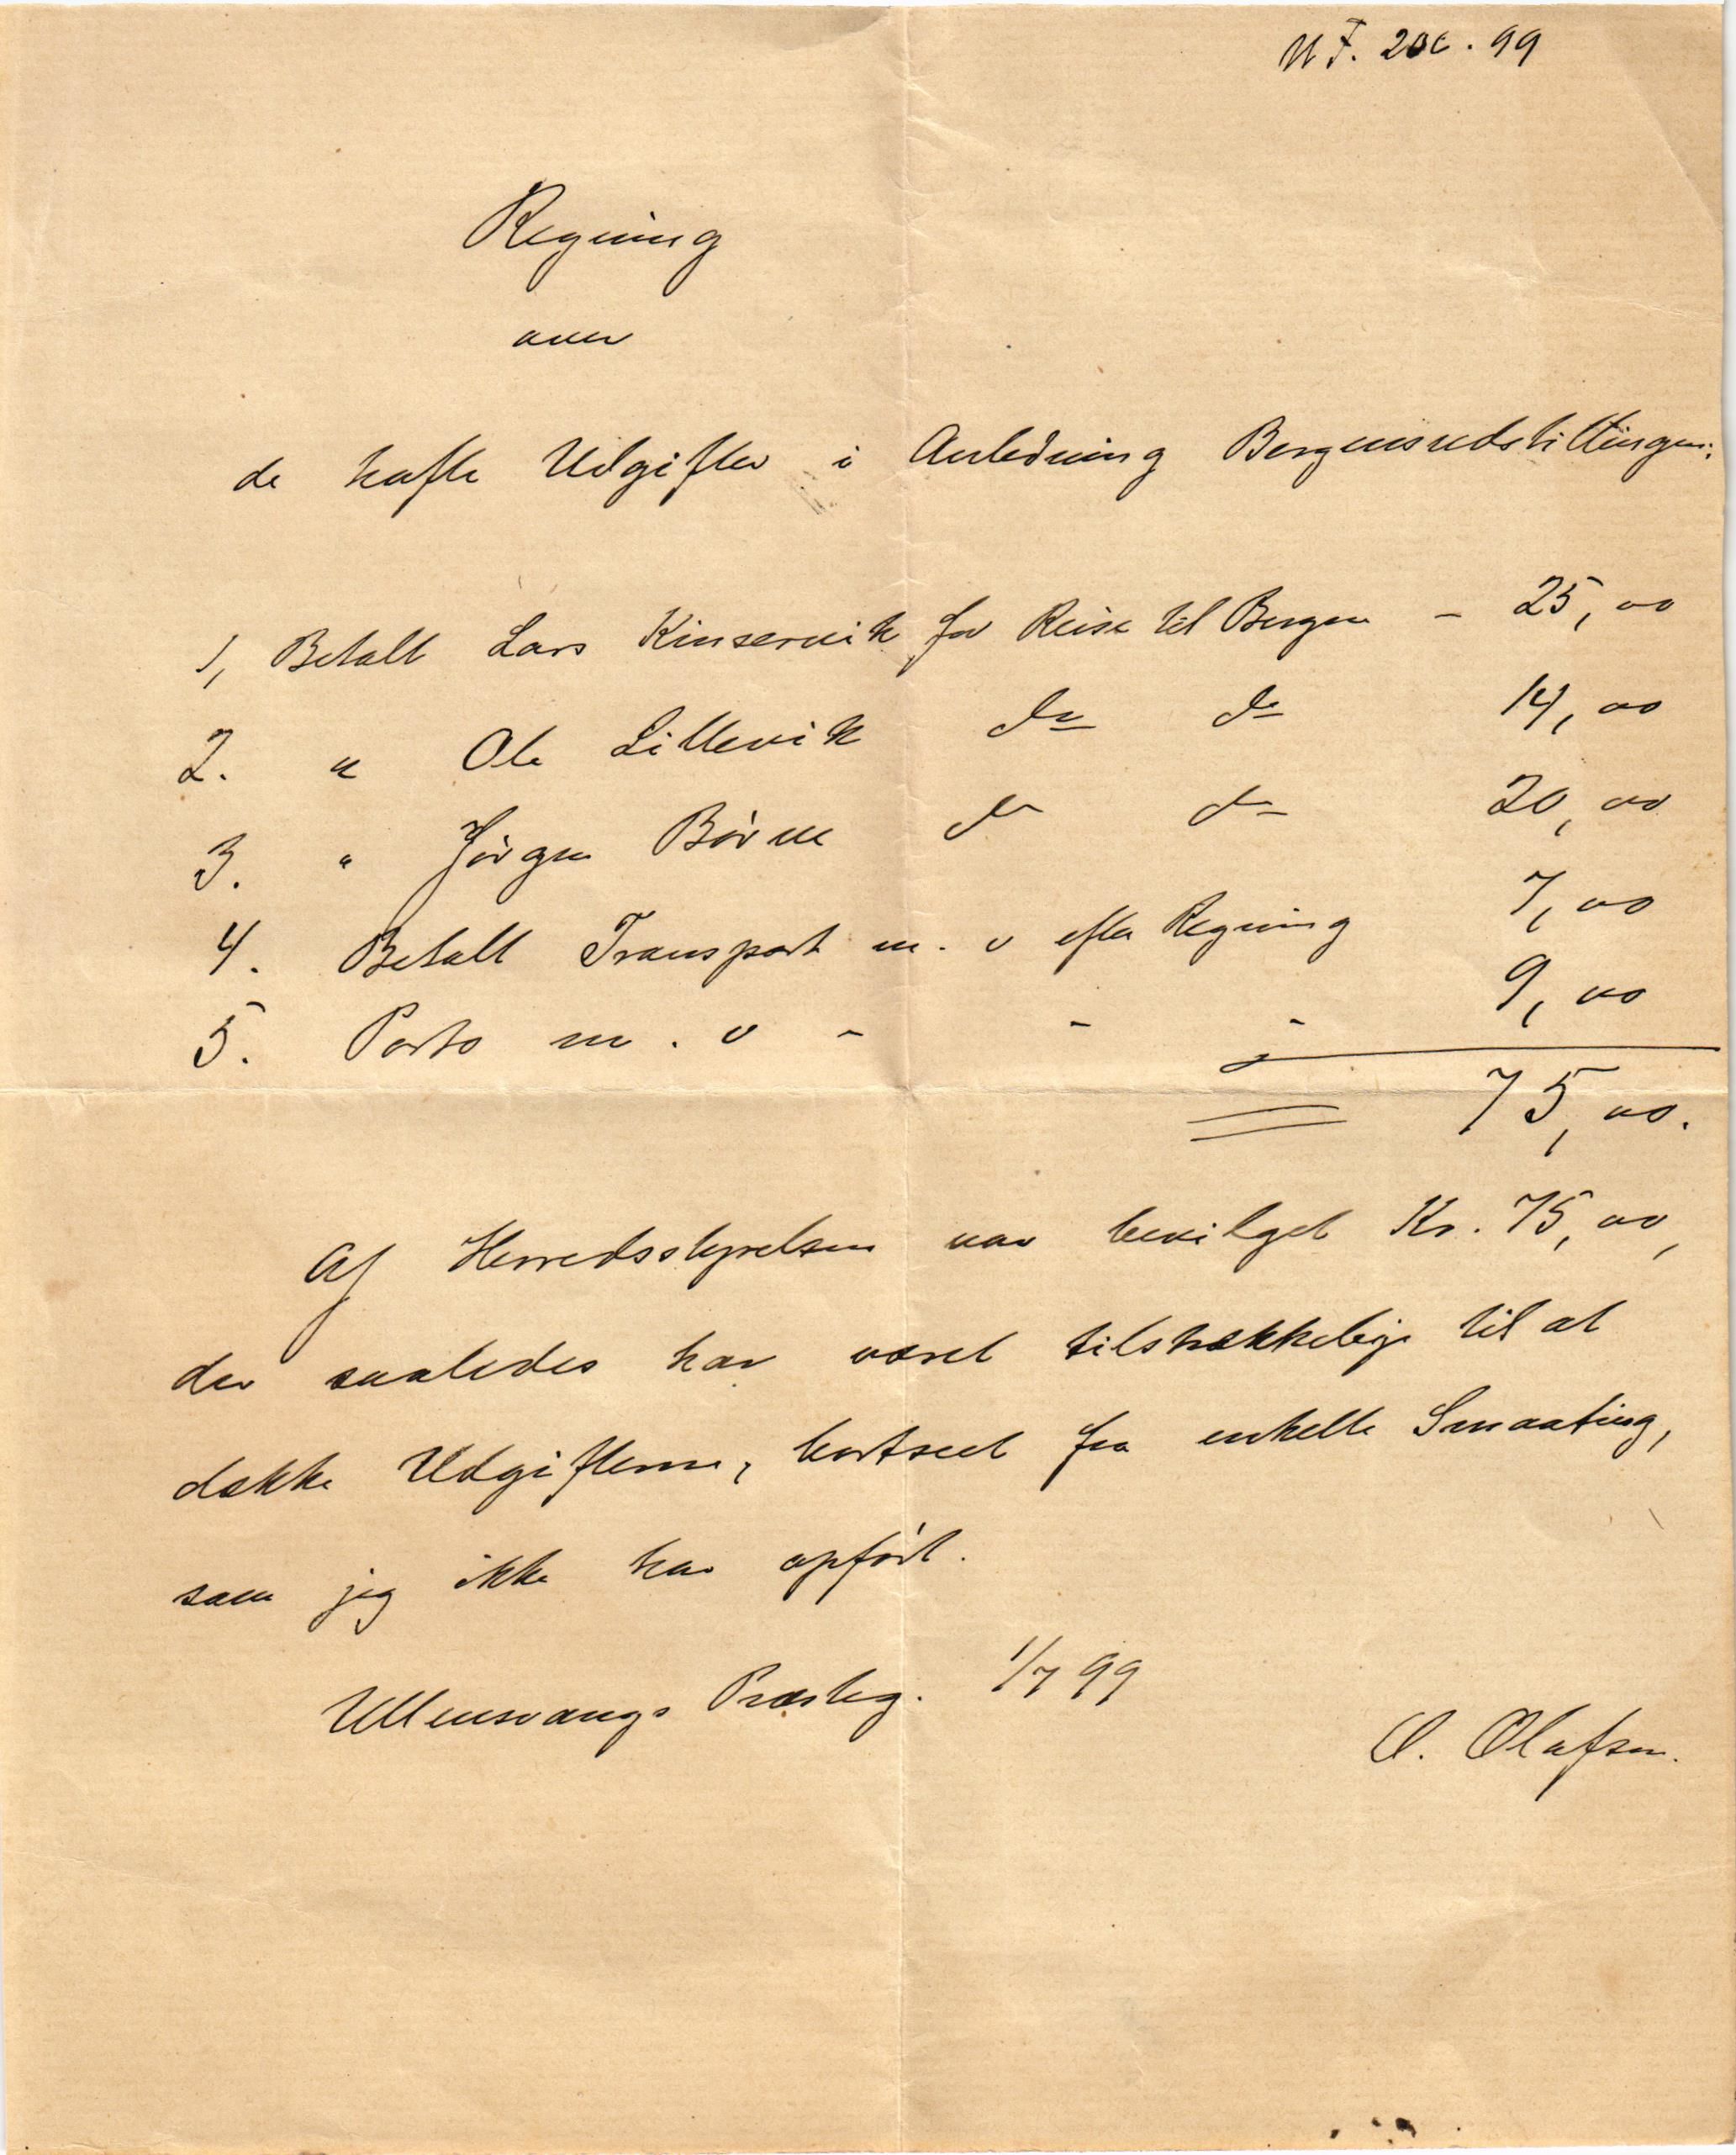 N F. 206. 99
Regning
over
de hafte Udgifter i Anledning Bergensudstillingen:
1, Betalt Lars Kinservik for Reise til Bergen - 25,00
2. " Ole Lillevik do do 14,00
3. " Jörgen Börve do do 20,00
4. Betalt Transport m. v efter Regning 7,00
5. Porto m. v - - - 9,00
75,00.
Af Herredsstyrelsen var bevilget Kr. 75,00,
der saaledes har været tilstrækkelige til at
dække Udgifterne, bortseet fra enkelte Smaating,
som jeg ikke har opfört.
Ullensvangs Præsteg. 1/7 99
O. Olafsen.